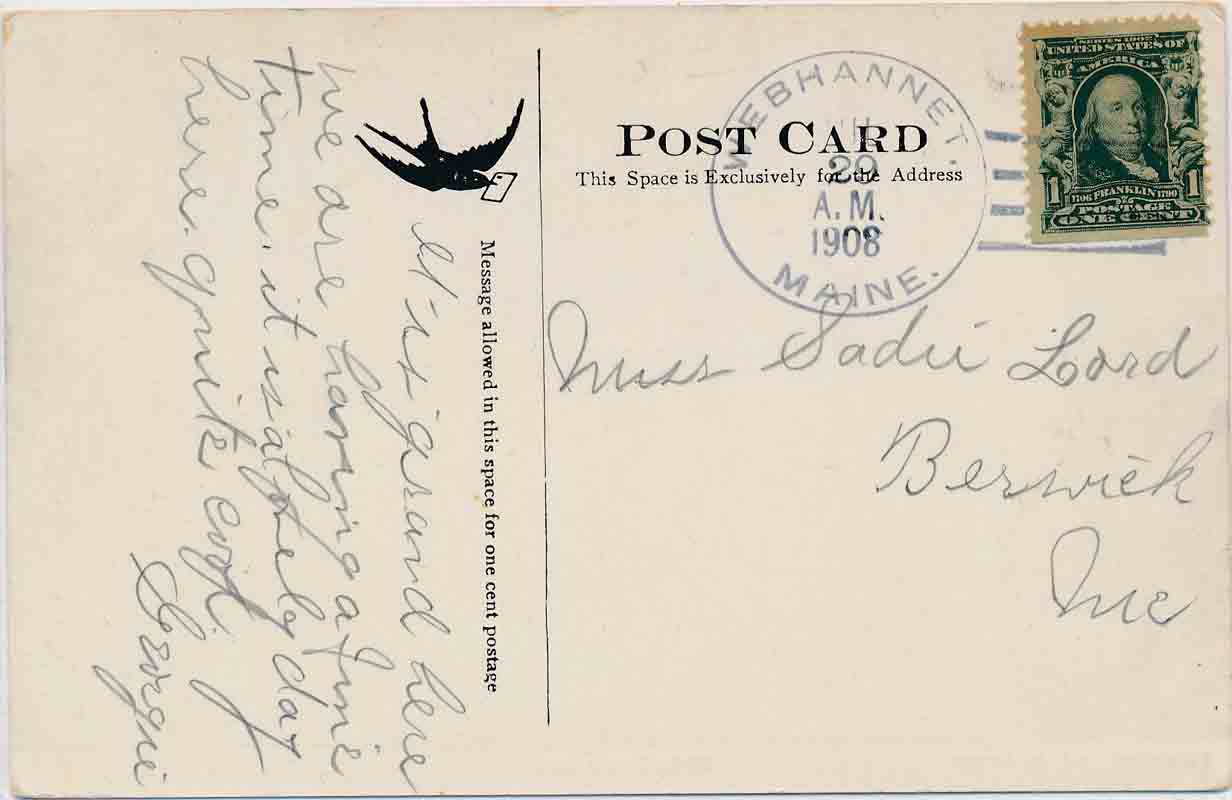 POST CARD
This Space is Exclusively for the Address
WEBHANNET.
A.M.
1908
MAINE.
SERIES 1902
UNITED STATES OF
AMERICA
1 1706 FRANKLIN 1790 1
POSTAGE
ONE CENT
Message allowed in this space for one cent postage
It's grand here
we are having a fine
time. it is a day
here. quite cool
Georgie
Miss Sadie Lord
Berwick
Me